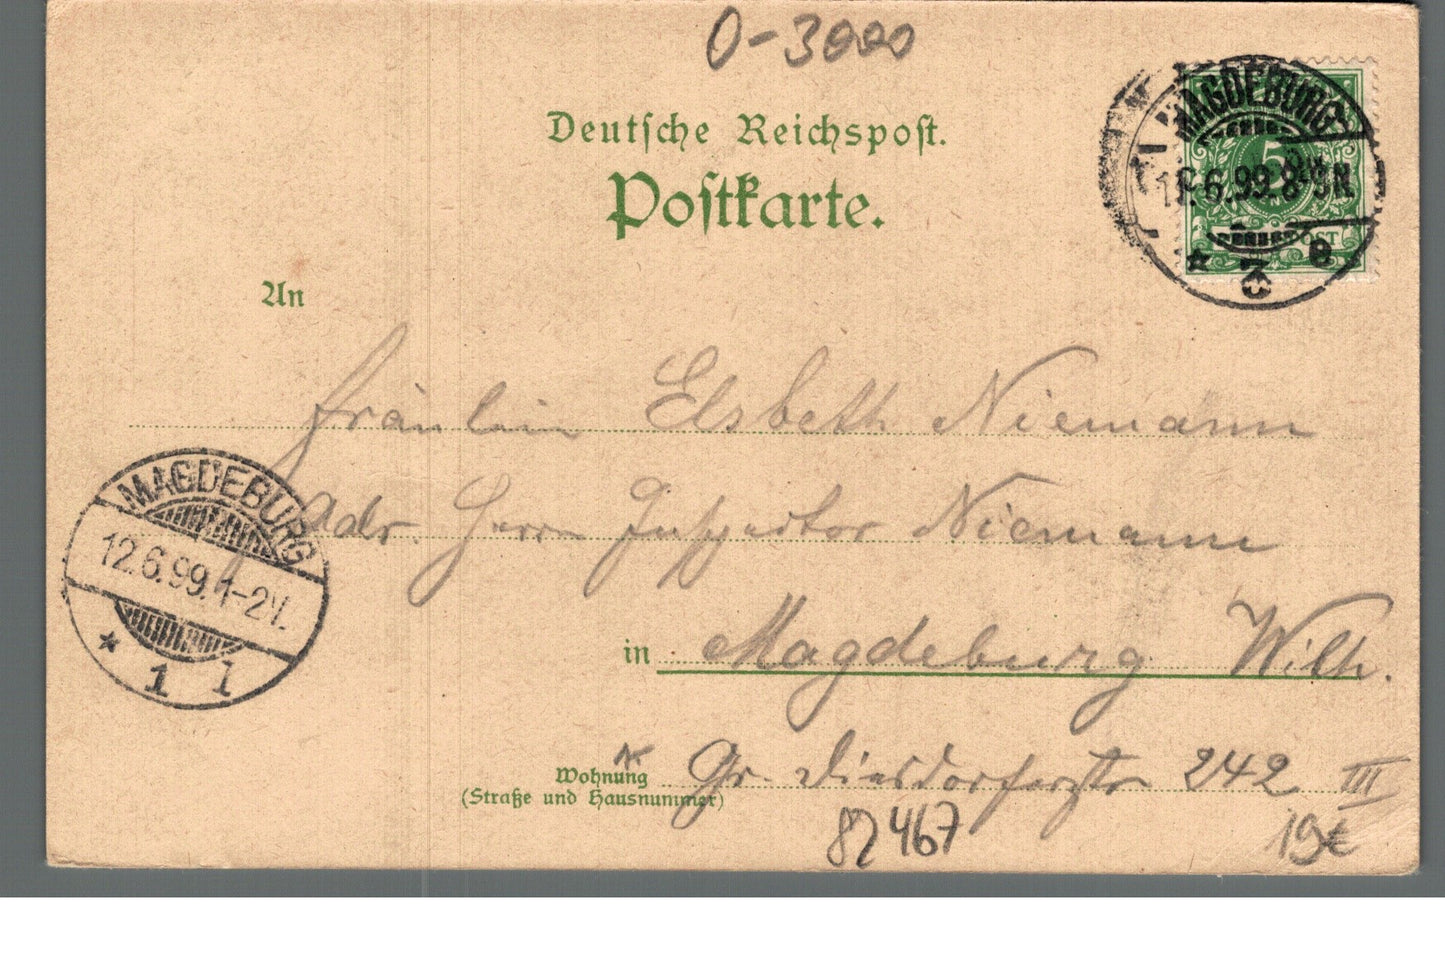 0-3000
Deutsche Reichspost.
Postkarte.
MAGDEBURG
6.99.8-9N.
* 3 e
5
POST
An
Fräulein Elsbeth Niemann
Adr. Herrn Inspektor Niemann
MAGDEBURG
12.6.99.1-2V.
* 1 l
in Magdeburg Wilh.
Wohnung Gr. Diesdorferstr 242 III
(Straße und Hausnummer)
82467
19€